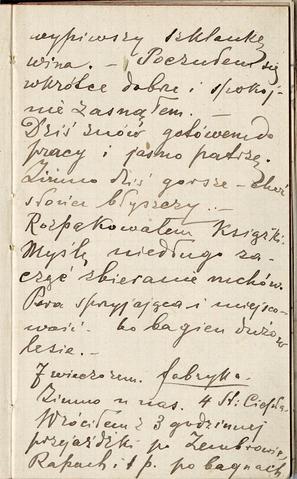 wypiwszy szklankę
wina. – Poczułem się
wkrótce dobrze i spokoj-
nie zasnąłem. –
Dziś znów gotówem do
pracy i jasno patrzę.
Zimno dziś gorsze – choć
słońce błyszczy. –
Rozpakowałem książki.
Myślę niedługo za-
cząć zbieranie mchów.
Pora sprzyjająca i miejsco-
wość – bo bagien dużo w
lesie. –
7 wieczorem. fabryka.
Zimno u nas. 4 St. Ciepła.
Wróciłem z 3 godzinnej
przejażdżki po Zembrowie,
i t p. po bagnach